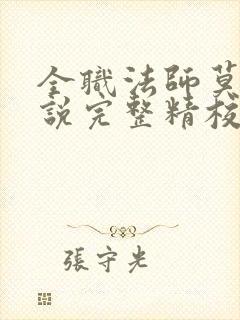 全職法師莫
說完整精校
張守光